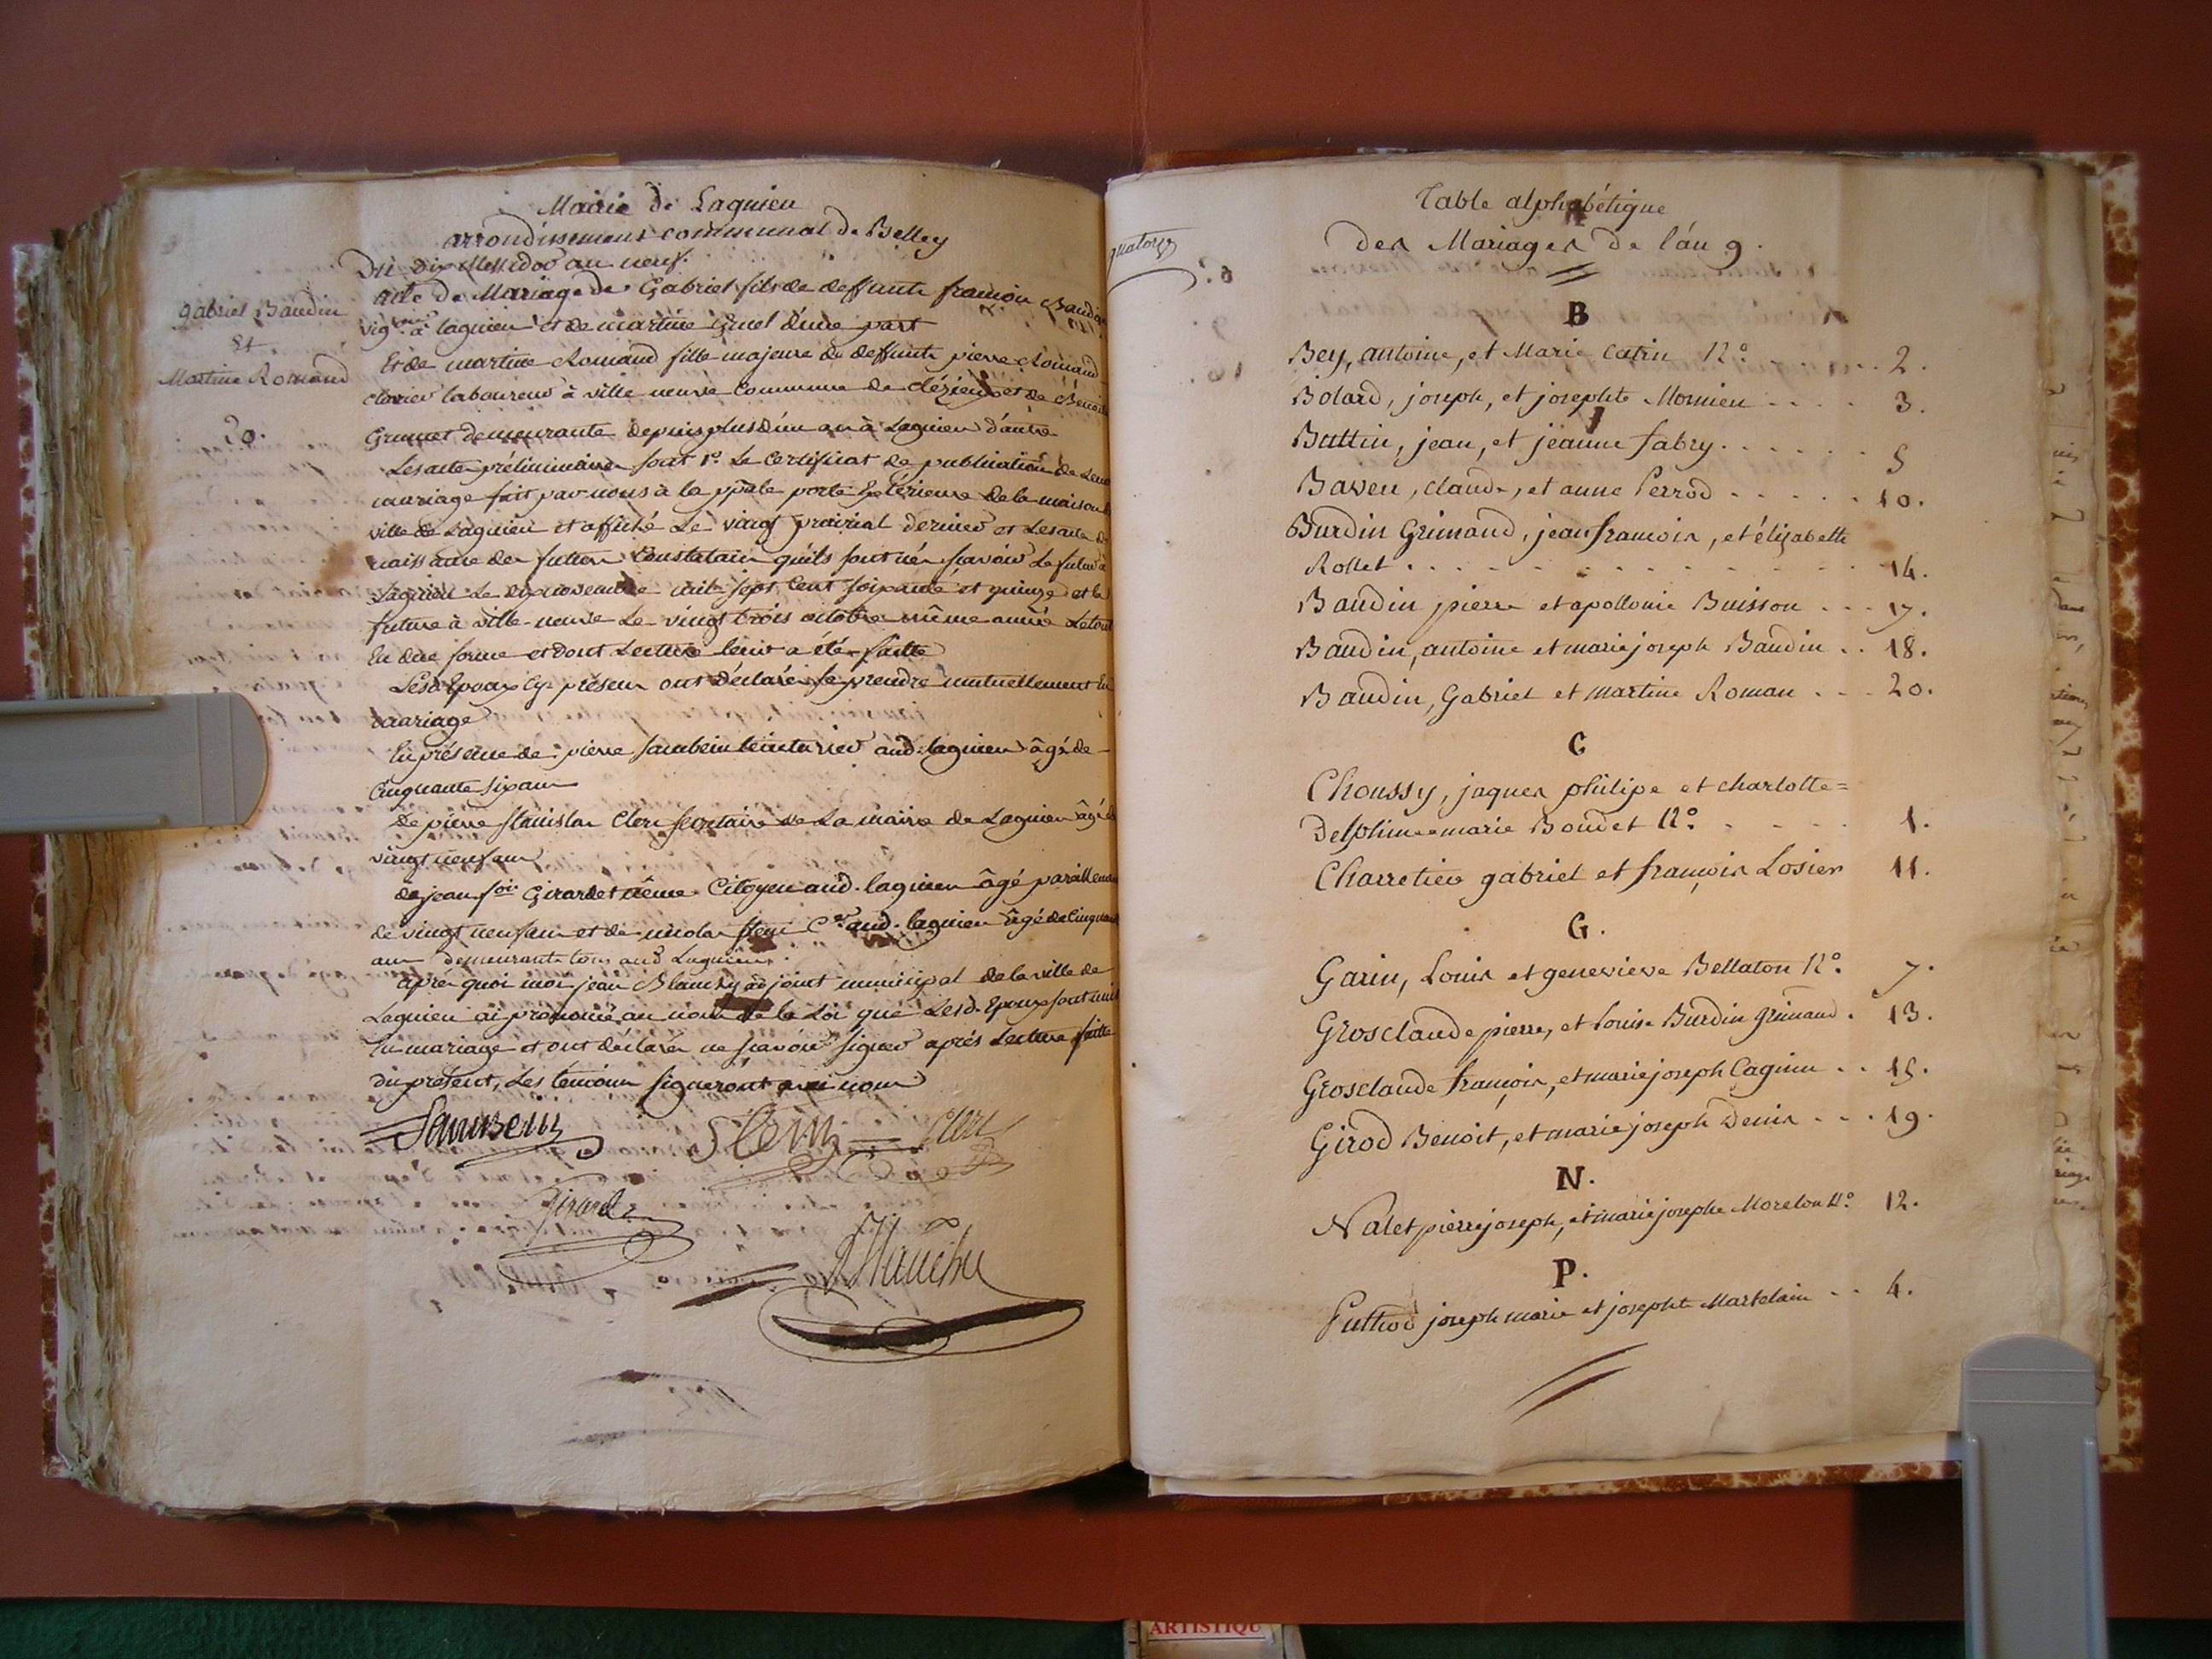 Mairie de Lagnieu
arrondissement communal de Belley
Du dix Messidor an neuf.
acte de Mariage de Gabriel fils de deffunt françois Baudin
vig.on à lagnieu et de martine d'une part
Et de martine Romand fille majeure de deffunt pierre Romand
laboureur à ville neuve commune de et de Benoite
Grumet demeurante depuis plus d'un an à Lagnieu d'autre
Les actes préliminaires sont 1º. Le Certificat de publication de Leur
mariage fait par nous à la pple porte Extérieure de la maison de
ville de Lagnieu et affiché Le vingt prairial dernier et Les actes de
naissance des futurs Constatans qu'ils sont nés scavoir Le futur à
Lagnieu Le dix novembre mil sept Cent soixante et quinze et la
future à ville-neuve Le vingt trois octobre même année Le tout
En due forme et dont Lecture leur a été faitte
Lesd. Epoux Cy présens ont déclarés se prendre mutuellement En
mariage
En présence de pierre Sambein teinturier aud. lagnieu âgé de
Cinquante six ans
De pierre Stanislas Clerc secretaire de La mairie de Lagnieu âgé de
vingt neuf ans
de jean fois Girardet même Citoyen aud. lagnieu âgé pareillement
de vingt neuf ans et de nicolas Slein aud. lagnieu âgé de Cinquante
ans demeurants tous aud. Lagnieu.
après quoi moi jean Blanchy adjoint municipal de la ville de
Lagnieu ai prononcé au nom de la Loi que Lesd. Epoux sont unis
En mariage et ont déclarés ne scavoir signer après Lecture faitte
du présent, Les témoins signeront avec nous
Sambein Slein Clerc
Girardet
gabriel Baudin
Et
Martine Romand
20.
quatorze
Table alphabétique
des Mariages de l'an 9.
B
Bey, antoine, et Marie Catin Nº. 2.
Bolard, joseph, et josephte Mornieu 3.
Buttin, jean, et jeanne fabry 5
Baven, claude, et anne Perrod 10.
Burdin Grimaud, jean françois, et élizabeth
Rollet 14.
Baudin pierre et apollonie Buisson 17.
Baudin, antoine et marie joseph Baudin 18.
Baudin, Gabriel et martine Roman 20.
C
Choussy, jaques philipe et charlotte=
Delphine marie Boudet Nº. 1.
Charretier gabriel et françois Losier 11.
G.
Garin, Louis et genevieve Bellaton Nº. 7.
Grosclaude pierre, et Louise Burdin grimaud. 13.
Grosclaude françois, et marie joseph Cagnin 15.
Girod Benoit, et marie joseph Denis 19.
N.
Nalet pierre joseph, et marie josephe Morelon Nº. 12.
P.
Puthod joseph marie et josephte Martelain 4.
ARTISTIQU